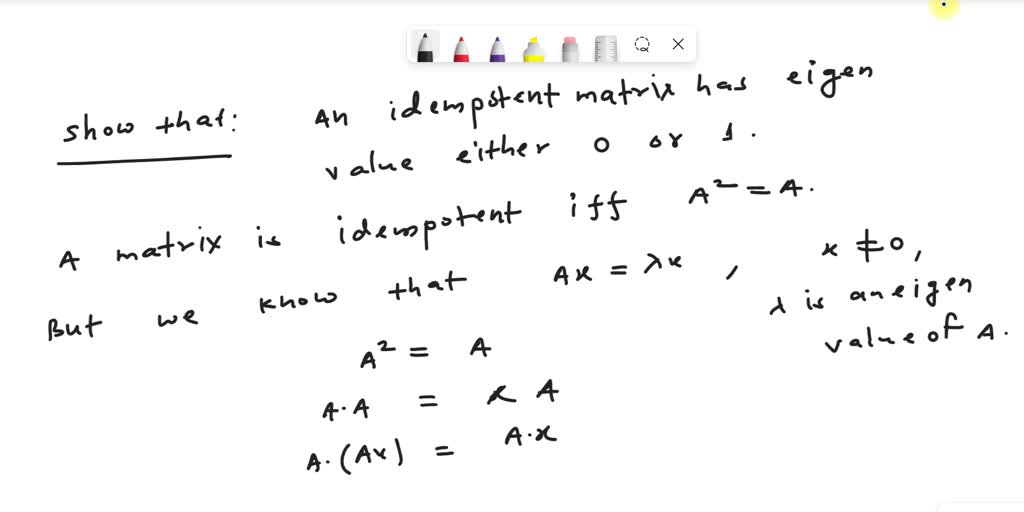 show that: An idempotent matrix has eigen
value either 0 or 1.
A matrix is idempotent iff A² = A.
But we know that Ax = λx, x ≠ 0,
λ is an eigen
value of A.
A² = A
A·A = x A
A·(Ax) = A·x